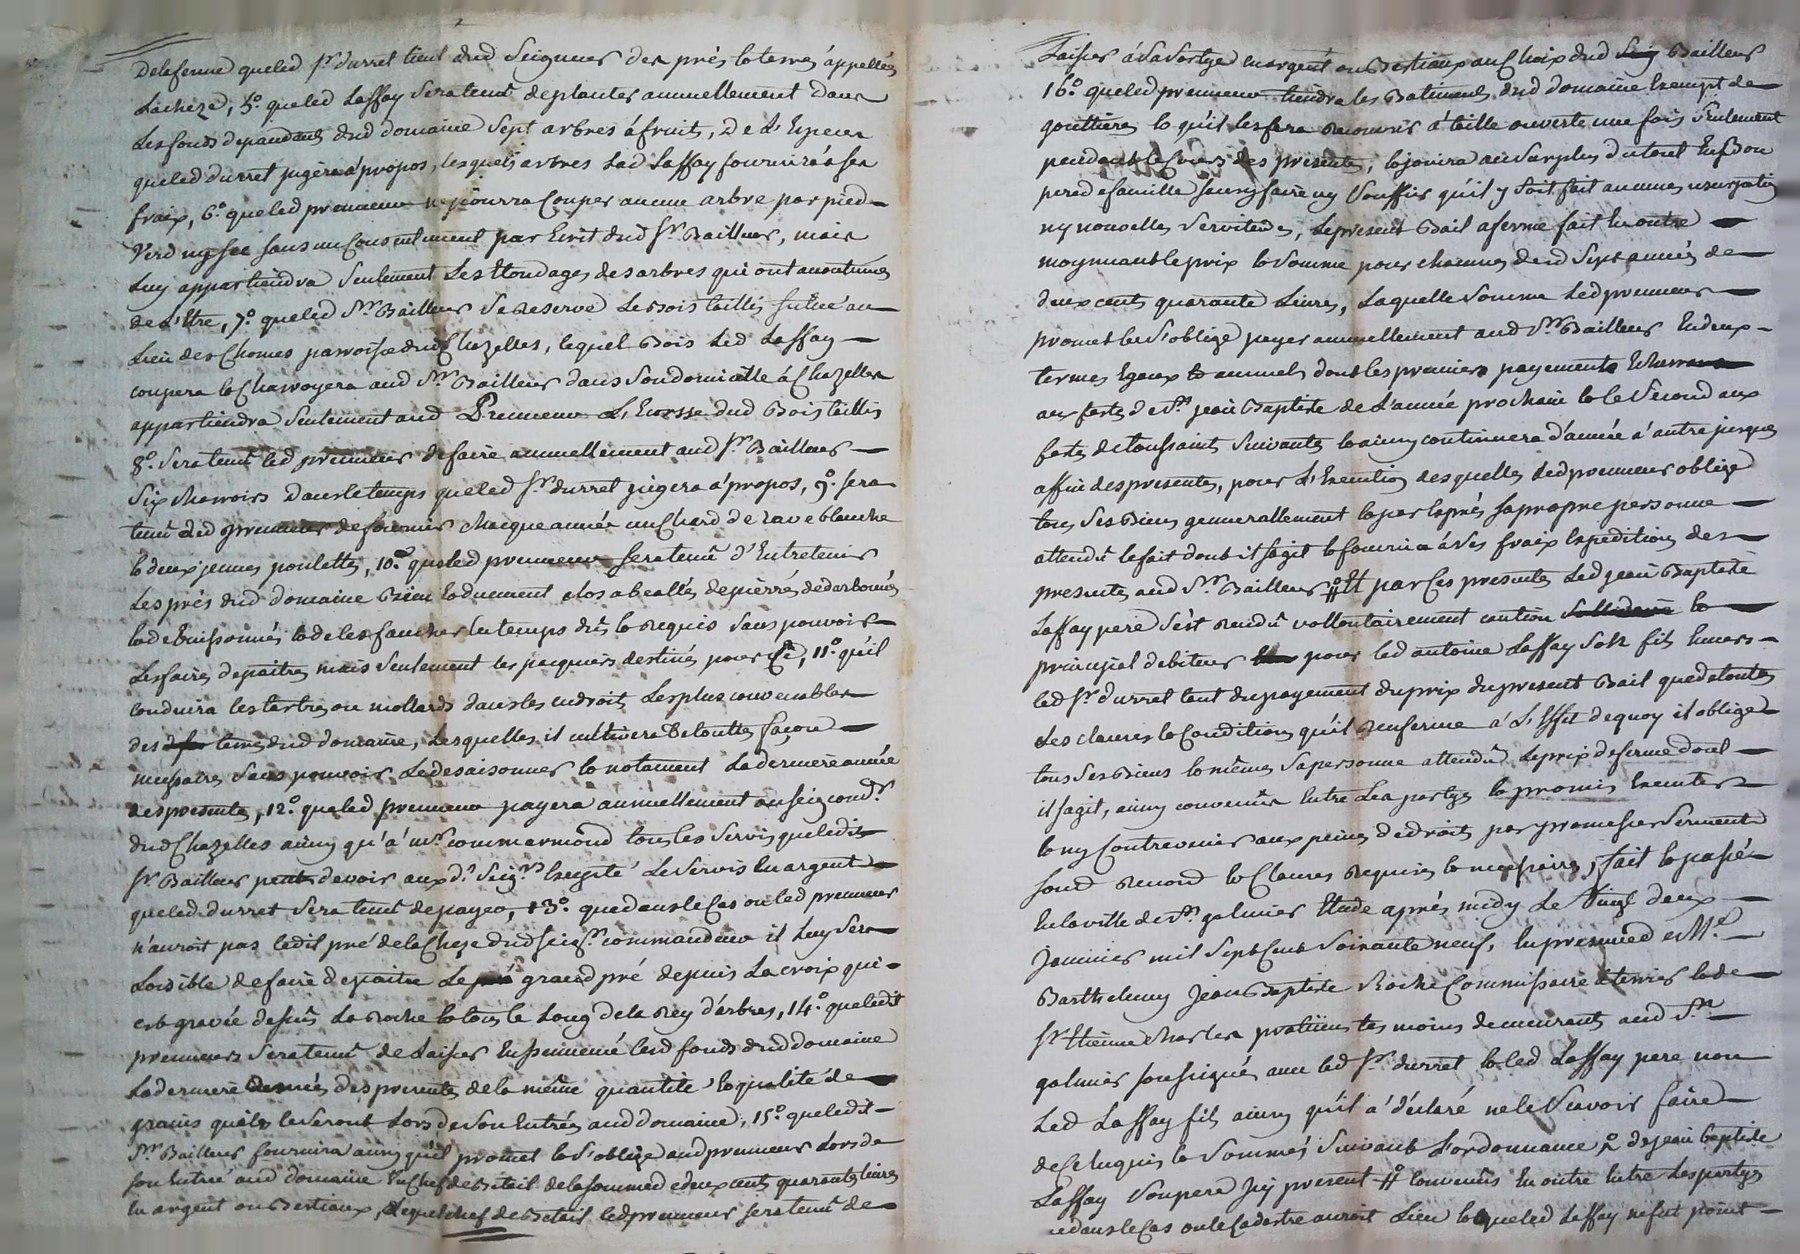 De la ferme que led sr. durret tient dud Seigneur des prés & terres appellés
Lachéze, 5°. que led Laffay sera tenu de planter annuellement dans
Les fonds dependants dud domaine Sept arbres a fruits, de L'Espece
que led durret jugera a propos, lesquels arbres Led Laffay fournira a ses
fraix, 6°. que led preneur ne pourra Couper aucun arbre par pied
Verd ny sec sans un Consentement par Ecrit dud Sr. Bailleur, mais
Luy appartiendra Seulement Les Elondages des arbres qui ont accoutumés
de L'Etre, 7°. que led Sr. Bailleur Se Reserve Le bois taillis située au
Lieu des Chomes parroisse dud Chazelles, lequel Bois Led Laffay
coupera & Charroyera aud Sr. Bailleur dans Son domicille á Chazelles
appartiendra Seulement aud Preneur L'Ecorsse dud Bois taillis
8°. Sera tenu led preneur de faire annuellement aud Sr. Bailleur
Six charrois dans le temps que led Sr. durret jugera a propos, 9°. sera
tenu Led preneur de fournir chacque année un Chard de rave blanche
& deux jeunes poulettes, 10°. que led preneur sera tenu d'Entretenir
Les prés dud domaine Bien & duement clos a beallés depierrés dedarbonnés
& deBuissonnés & de les faucher en temps dû & requis Sans pouvoir
Les faire depaitre mais Seulement les pacquiers destinés pour Ce, 11°. qu'il
conduira les tertres ou mollards dans les endroits Les plus convenables
des terres dud domaine, Lesquelles il cultivera De touttes façons
necessaires Sans pouvoir Les desaisonner & notament La derniere année
des presentes, 12°. que led preneur payera annuellement au Seig. comdr.
dud Chazelles ainsy qu'á mr. commarmond tous les Servis que ledit
Sr. Bailleur peut devoir aux ds. Seigrs. Excepté Le Servis En argent
que led. durret Sera tenu de payer, 13°. que dans le Cas ou led preneur
n'auroit pas ledit pré de la Cheze dud Seigr. commandeur il Luy Sera
Loisible de faire depaitre Le grand pré depuis La croix qui
est gravée dessus La Roche & tout le Long de la Rey d'arbres, 14°. que ledit
preneur Sera tenu de Laisser Ensemencé lesd fonds dud domaine
La derniere Année des presentes de la même quantité & qualité de
grains qu'ils le Seront Lors de Son Entrée aud domaine, 15°. que ledit
Sr. Bailleur fournira ainsy qu'il promet & S'oblige aud preneur Lors de
son Entrée aud domaine En Chef de Betail de la somme de deux cents quarante livres
En argent ou Bestiaux, Lequel Chef de Betail led preneur sera tenu de
Laisser á sa sortye En argent ou Bestiaux au Choix dud Bailleur
16°. que led preneur tiendra les Batiments dud domaine Exempt de
gouttieres & qu'il les fera recouvrir á taille ouverte une fois Seulement
pendant le Cours des presentes, & jouira au Surplus du tout En Bon
pere de famille sans y faire ny Souffrir qu'il y Soit fait aucunes usurpations
ny nouvelles Servitudes, Le present Bail a ferme fait En outre
moyennant le prix & Somme pour chacunes desd Sept années de
deux cents quarante Livres, Laquelle Somme Led preneur
promet & S'oblige payer annuellement aud Sr. Bailleur En deux
termes Egaux & annuels dont les premiers payements Echerront
aux festes de St. jean Baptiste de L'année prochaine & le Second aux
festes de toussaints Suivantes & ainsy continuera d'année á autre jusques
affin des presentes, pour L'Execution desquelles Led preneur oblige
tous Ses Biens generallement & par Exprés sa propre personne
attendû le fait dont il s'agit & fournira á Ses fraix Expedition des
presentes aud Sr. Bailleur # Et par Ces presentes Led jean Baptiste
Laffay pere S'est rendû vollontairement caution Sollidaire &
principal debiteur pour led antoine Laffay Son fils Envers
led Sr. durret tant du payement du prix du present Bail que de toutes
Les clauses & Conditions qu'il Renferme á L'Effet de quoy il oblige
tous Ses Biens & mêmes Sa personne attendû Le prix de ferme dont
il s'agit, ainsy convenû Entre Les partyes & promis Executer
& ny Contrevenir aux peines de droit par promesses Serment
soud Renond & Clauses Requises & necessaires, fait & passé
En la ville de St. galmier Etude aprés midy Le Vingt deux
Janvier mil Sept Cent Soixante neuf, En presence de Me.
Barthelemy Jean Baptiste Roche Commissaire á terrier & de
Sr. Etienne Charles praticien temoins demeurants aud St.
galmier soussignés avec led Sr. durret & led Laffay pere non
Led Laffay fils ainsy qu'il a déclaré ne le Scavoir faire
de Ce Enquis & Sommés Suivant L'ordonnance, & de jean baptiste
Laffay Son pere Jcy present # Convenûs En outre Entre Les partyes
que dans le Cas ou le Cadastre auroit Lieu & que led Laffay ne fut point